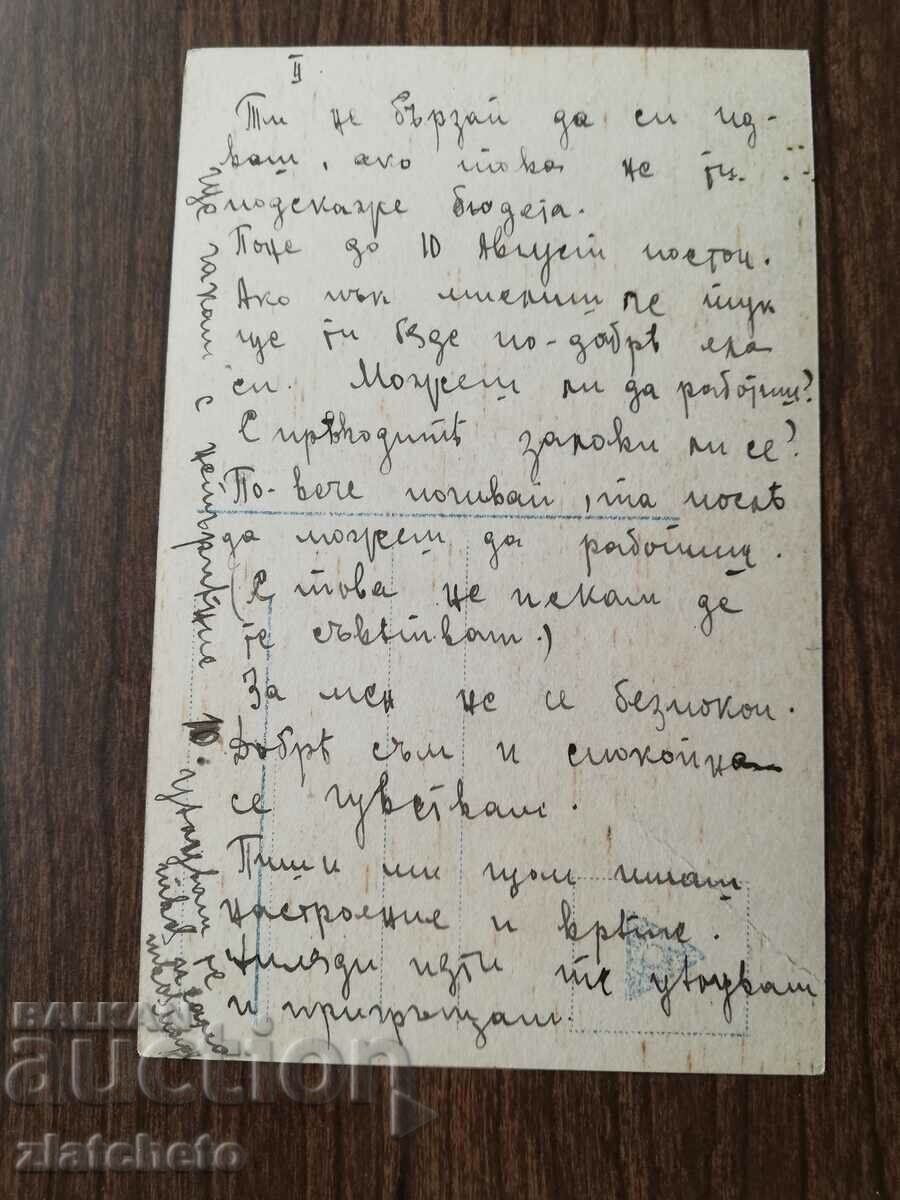 II
Ти не бързай да си ид-
ваш, ако това не ти
подскаже бюдета.
Поне до 10 Август постой.
Ако пък мислиш че тук
ще ти бѫде по-добрѣ ела
си. Можеш ли да работиш?
С прѣводитѣ залови ли се?
По-вече почивай, та послѣ
да можеш да работиш.
(С това не искам да
те съвѣтвам.)
За мен не се безпокои.
Добрѣ съм и спокойна
се чувствам.
Пиши ми щом имаш
настроение и врѣме.
Хиляди пѫти те цѣлувам
и пригръщам.
Ще чакам с нетърпѣние 10.
цѣлувам те
BALKAN
auction
zlatcheto